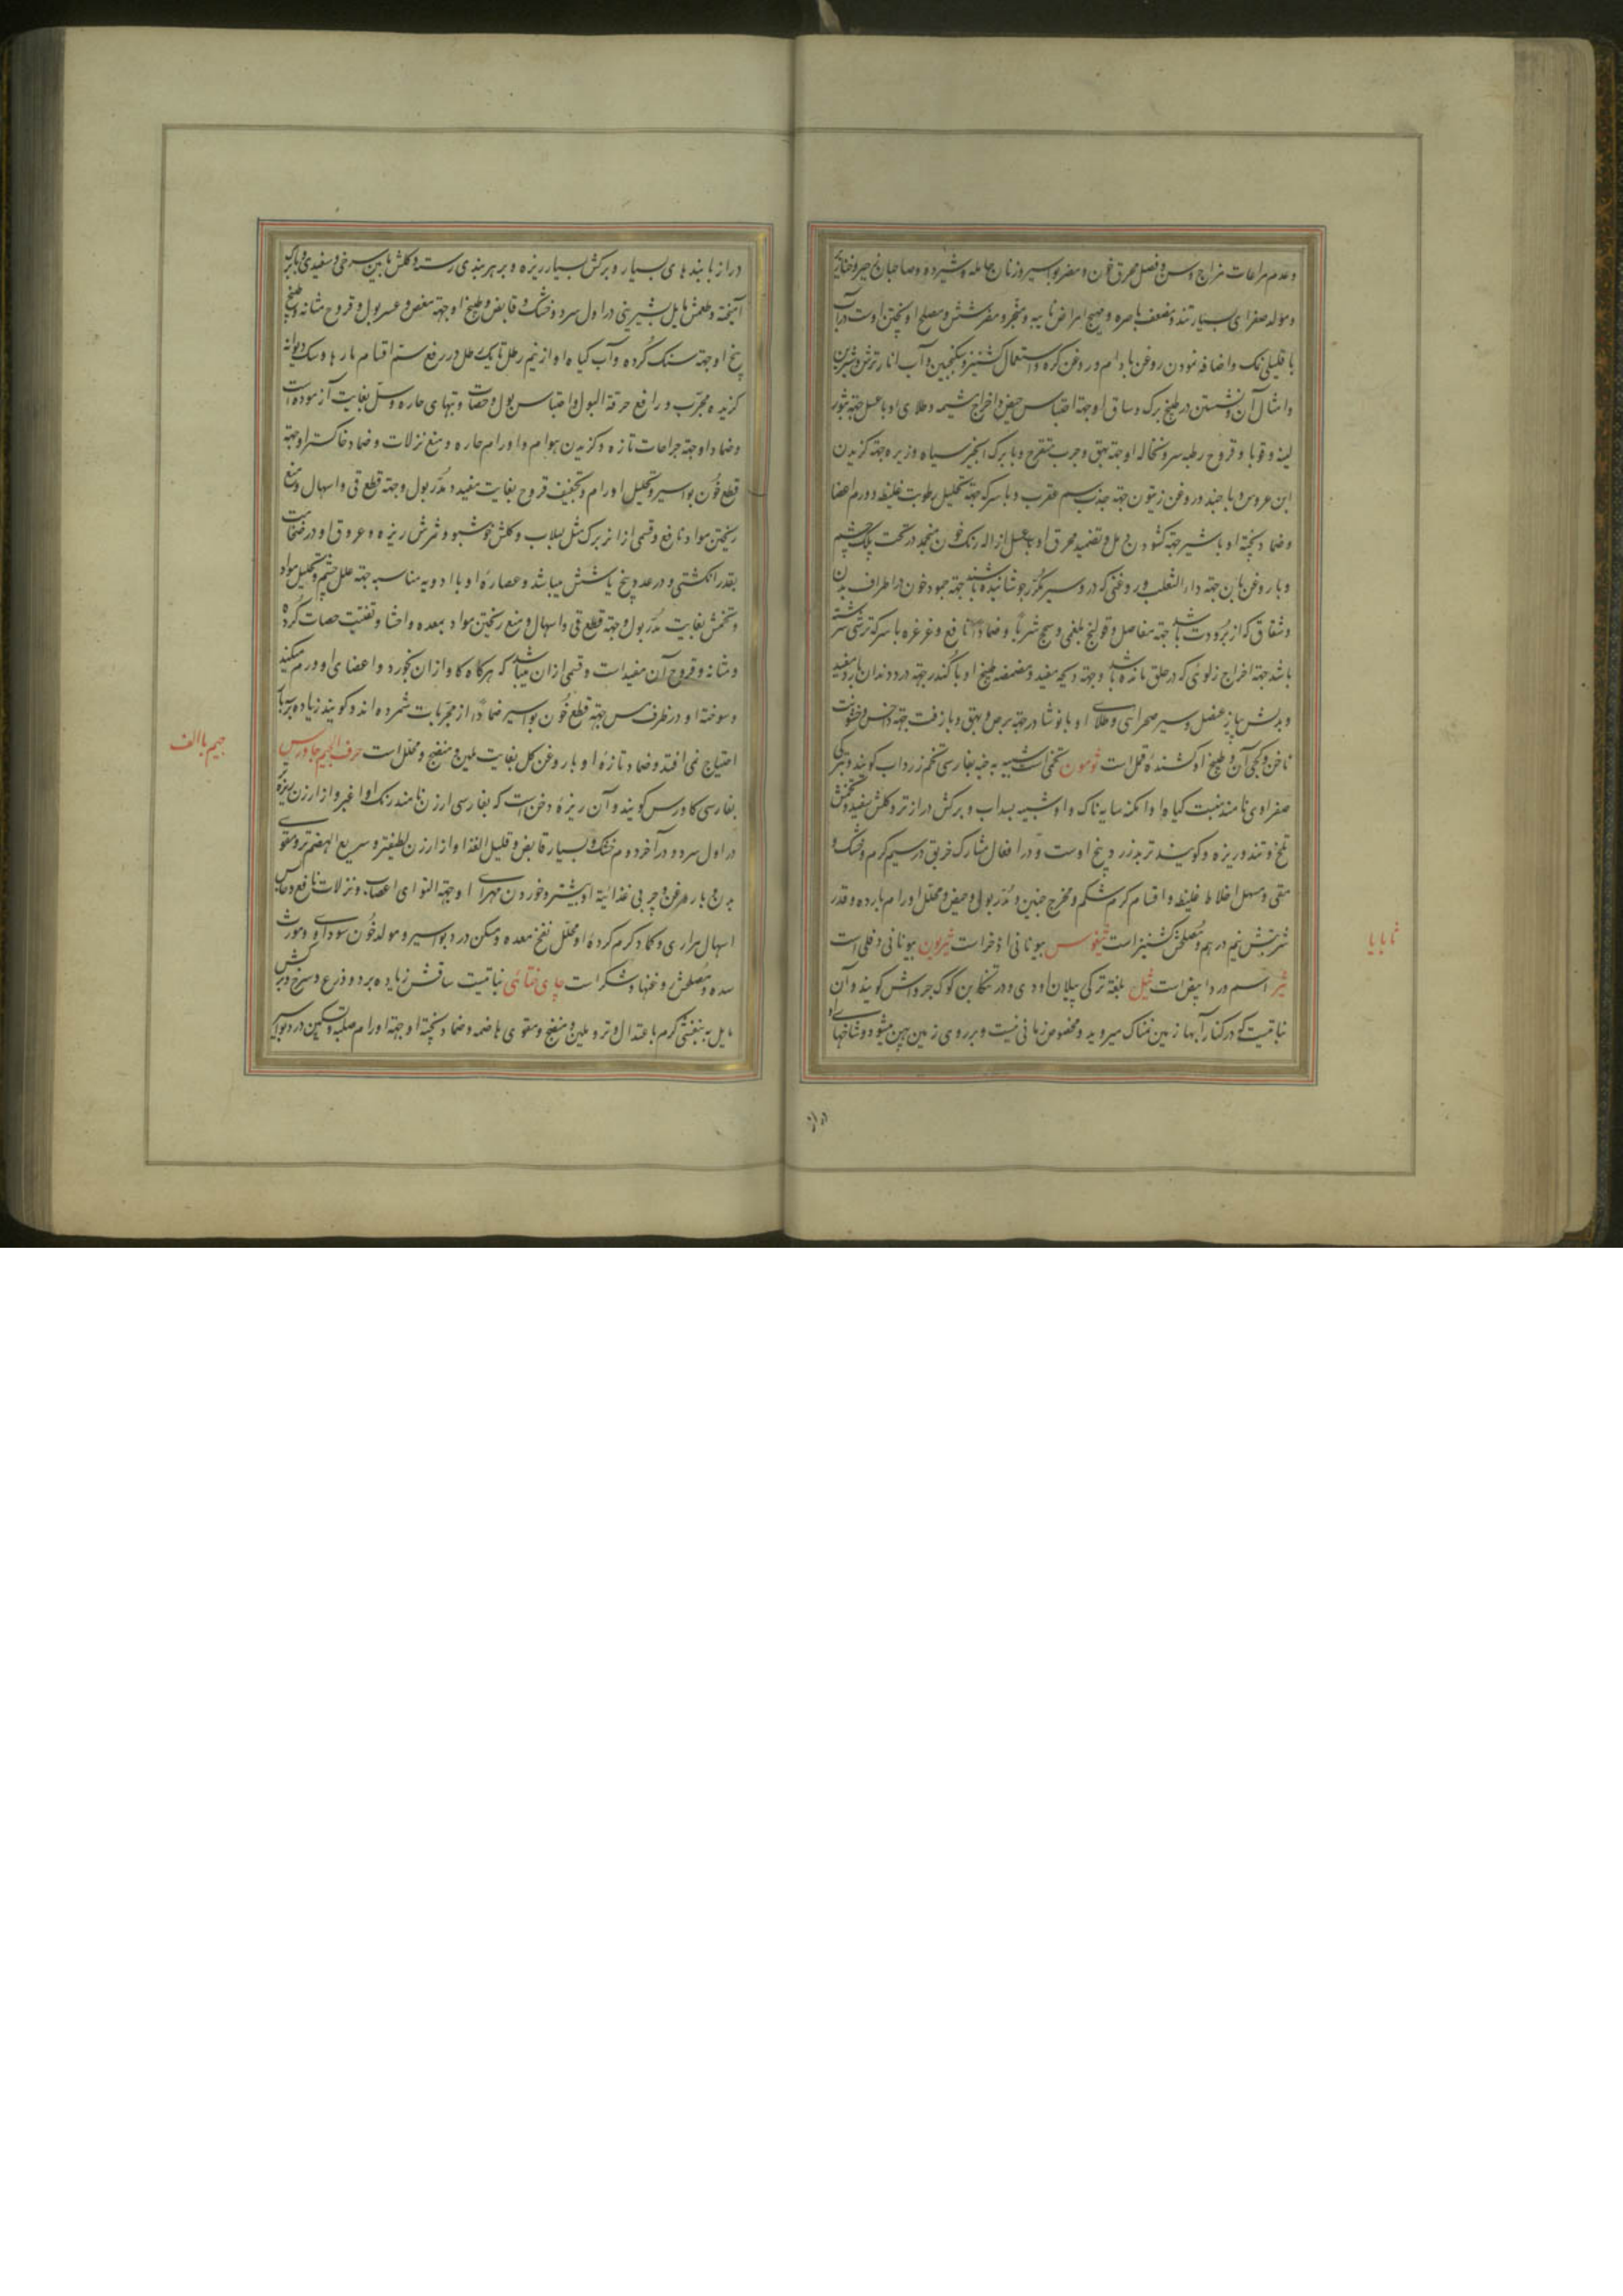 و عدم مراعات مزاج و سن و فصل محرق خون و مضر بواسیر و زنان حامله و شیرده و صاحبان
و مولد صفرای بسیار تند و مضعف باصره و مهیج امراض و مبخر و مضر شش و مصلح او پختن اوست در آب
با قلیلی نمک و اضافه نمودن روغن بادام و روغن گاو و استعمال کشنیز و سکنجبین و آب انار ترش و شیرین
و امثال آن و نشستن در طبیخ برگ و ساق او جهة احتباس حیض و اخراج مشیمه و طلای او با عسل جهة بثور
لبنیه و قوبا و قروح رطبه سر و نخاله او جهة بهق و جرب متقرح و با برگ انجیر سیاه و زیره جهة گزیدن
ابن عروس و با جند در روغن زیتون جهة جذب سم عقرب و با سرکه جهة تحلیل رطوبت غلیظه و ورم اعضا
و ضماد پخته او با شیر جهة گشودن دمل و تضمید محرق او با عسل ازاله رنگ خون منجمد در تحت پلک چشم
و با روغن بان جهة داء الثعلب و روغنی که در و سیر مکرر جوشانیده باشند جهة جمود خون در اطراف بدن
و شقاق که از برودت باشد جهة مفاصل و قولنج بلغمی و سحج شربا و ضمادا نافع و غرغره با سرکه
باشد جهة اخراج زلوئی که در حلق مانده باشد و جهة مفید و مضمضه طبیخ او با کندر جهة درد دندان بارد مفید
و بدلش پیاز عنصل و سیر صحرایی و طلای او با نوشادر جهة برص و بهق و با زفت جهة داحس و خشونت
ناخن و کجی آن و طبیخ او کشندهٔ قمل است ثومون تخمی است شبیه به حبه بفارسی تخم زرد آب کویند و بترکی
صفر اوی نامند منبت کیاه او امکنه سایه ناک و او شبیه بسداب و برکش درازتر و کلش سفید و تخمش
تلخ و تند و ریزه و کویند تربد زرد بیخ اوست و در افعال مشارک خربق در سیم کرم و خشک و
مقی و مسهل اخلاط غلیظه و اقسام کرم شکم و مخرج جنین و مدر بول و حیض و محلل اورام بارده و قدر
شربتش نیم درهم و مصلحش کشنیز است ثیغوس بیونانی اذخر است ثیرون بیونانی دفلی است
ثیر اسم ورد ابیض است ثیل بلغة ترکی بیلان اودی و در تنکابن کوک جرواش کویند و آن
نباتیست که در کنار آبها و زمین نمناک میروید و مخصوص زمانی نیست و بر روی زمین پهن میشود و شاخهای او
ثا با یا
دراز با بندهای بسیار و برکش بسیار ریزه و بر هر بندی رسته و کلش مابین سرخی و سفیدی و با برگ
آمیخته و طعمش مایل بشیرینی در اول سرد و خشک و قابض و طبیخ او جهة مغص و عسر بول و قروح مثانه و طبیخ
بیخ او جهة سنک کرده و آب کیاه او از نیم رطل تا یک رطل در رفع سم اقسام مارها و سک دیوانه
کزیده مجرب و رافع حرقة البول و احتباس بول و حصات و تبهای حاره و سل بغایت آزموده است
و ضماد او جهة جراحات تازه و کزیدن هوام و اورام حاره و منع نزلات و ضماد خاکستر او جهة
قطع خون بواسیر و تحلیل اورام و تجفیف قروح بغایت مفید و مدر بول و جهة قطع قی و اسهال و منع
ریختن مواد نافع و قسمی از از برک مثل لبلاب و کلش خوشبو و ثمرش ریزه و عروق او در ضخامت
بقدر انکشتی و در عدد پنج یا شش میباشد و عصارهٔ او با ادویه مناسبه جهة علل چشم و تحلیل مواد
و تخمش بغایت مدر بول و جهة قطع قی و اسهال و منع ریختن مواد بمعده و احشا و تفتیت حصات کرده
و مثانه و قروح آن مفید است و قسمی از ان میباشد که هرکاه کاو از ان بخورد و اعضای او ورم میکند
و سوخته او در ظرف مس جهة قطع خون بواسیر ضمادا از مجربات شمرده اند و کویند زیاده بر سه بار
احتیاج نمی افتد و ضماد تازه او با روغن کل بغایت ملین و منضج و محلل است حرف الجیم جاورس
بفارسی کاورس کویند و آن ریزه دخن است که بفارسی ارزن نامند رنک او اغبر و از ارزن ریزه تر
در اول سرد و در آخر دوم خشک و بسیار قابض و قلیل الغذا و از ارزن لطیفتر و سریع الهضم تر و مقوی
بدن و با روغن و چربی غذائیة او بیشتر و خوردن مهرای او جهة التوای اعصاب و نزلات نافع و حابس
اسهال مراری و کماد کرم کرده او محلل نفخ معده و مسکن درد بواسیر و مولد خون سوداوی و مورث
سده و مصلحش روغنها و شکر است چای ختائی نباتیست ساقش زیاده بر دو ذرع و سرخ و برکش
مایل به بنفشی کرم باعتدال و تر و ملین و منضج و مقوی هاضمه و ضماد پخته او جهة اورام صلبه و تسکین درد بواسیر
جیم با الف